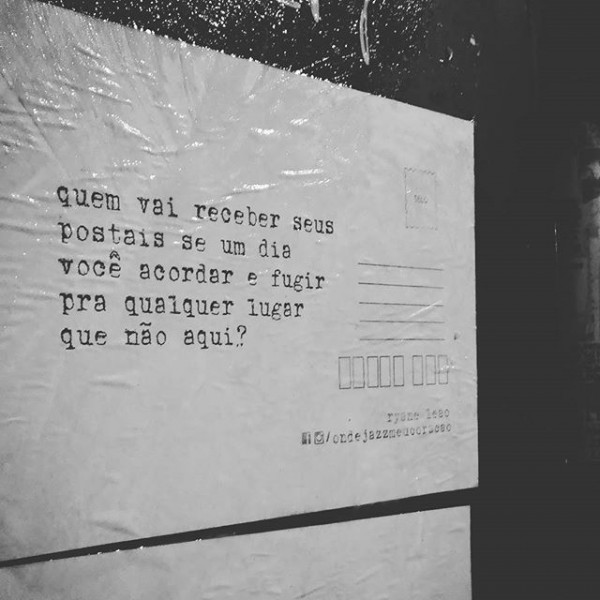 quem vai receber seus
postais se um dia
você acordar e fugir
pra qualquer lugar
que não aqui?
selo
ryane leao
/ondejazzmeucoracao